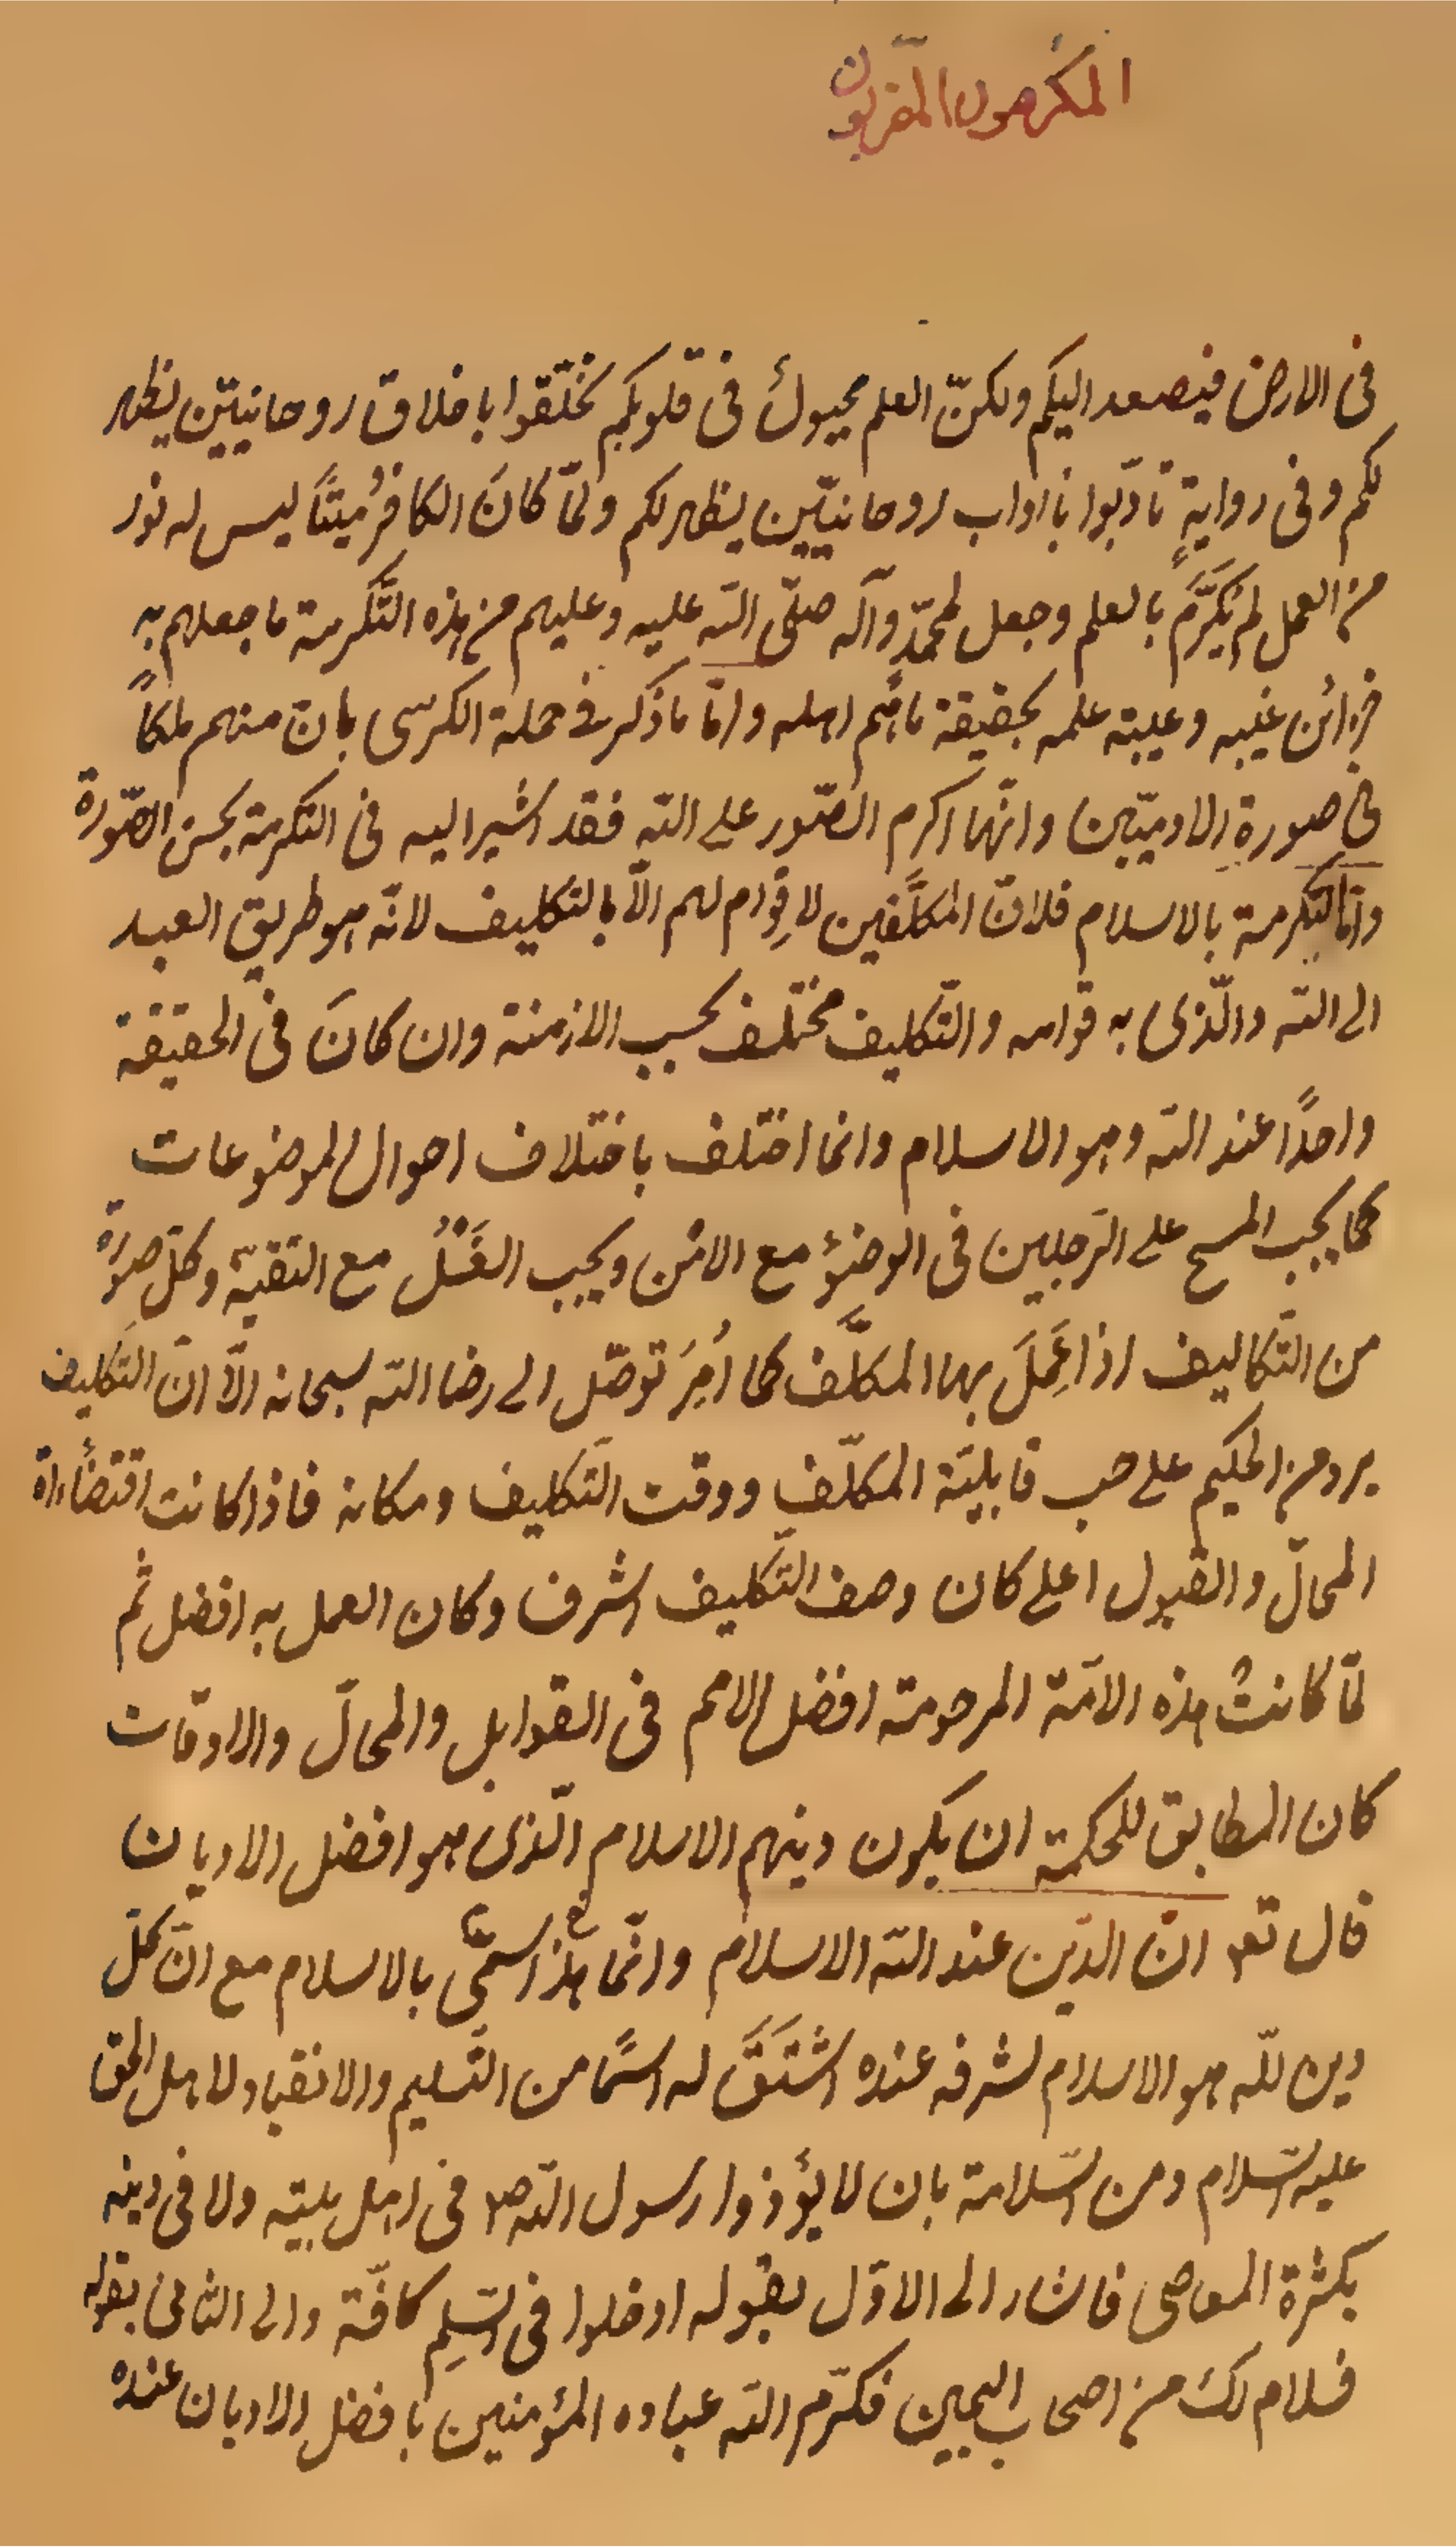 المكرمون المقربون
فى الارض فيصعد اليكم ولكنّ العلم مجبولٌ فى قلوبكم تخلّقوا باخلاق روحانيّين يظهر
لكم وفى روايةٍ تادّبوا باٰداب روحانيّين يظهر لكم ولمّا كانَ الكافرُ ميتًا ليس له نور
من العمل لم يُكَرَّم بالعلم وجعل لمحمّدٍ وآله صلّى الله عليه وعليهم من هذه التَّكرمة ما جعلهم به
خزائن غيبه وعيبة علمه بحقيقة ما هُم اهله وامّا ما ذكر فى حملة الكرسى بانّ منهم ملكاً
فى صورة الادميّين وانّها اكرم الصّور على الله فقد اشير اليه فى التكرمة بحسن الصّورة
وامّا التكرمة بالاسلام فلانّ المكلَّفين لا قِوام لهم الّا بالتكليف لانّه هو طريق العبد
الى الله والّذى به قوامه والتّكليف مختلف بحسب الازمنة وان كانَ فى الحقيقة
واحدًا عند الله وهو الاسلام وانما اختلف باختلاف احوال الموضوعات
كما يجب المسح على الرّجلين فى الوضوء مع الامن ويجب الغَسْلُ مع التقيّة وكلّ صورةٍ
من التّكاليف اذا عَمِلَ بها المكلَّف كما اُمِرَ توصّل الى رضا الله سبحانه الّا انّ التّكليف
يرد من الحكيم على حسب قابليّة المكلّفِ ووقت التّكليف ومكانه فاذا كانت اقتضاءاة
المحالّ والقبول اعلى كان وصف التّكليف اشرف وكان العمل به افضل ثم
لمّا كانتْ هذه الامّة المرحومة افضل الامم فى القوابل والمحالّ والاوقات
كان المطابق للحكمة ان يكون دينهم الاسلام الّذى هو افضل الاديان
قال تعـ انّ الدّين عند الله الاسلام وانّما هذا سمّى بالاسلام مع انّ كلّ
دين للّه هو الاسلام لشرفه عنده اشْتَقَّ له اسمًا من التّسليم والانقياد لاهل الحق
عليه السّلام ومن السّلامة بان لا يؤذوا رسول الله صـ فى اهل بيته ولا فى دينه
بكثرة المعاصى فاشار الى الاوّل بقوله ادخلوا فى السّلمِ كافّة والى الثانى بقوله
فسلام لك من اصحاب اليمين فكرّم الله عباده المؤمنين بافضل الاديان عنده